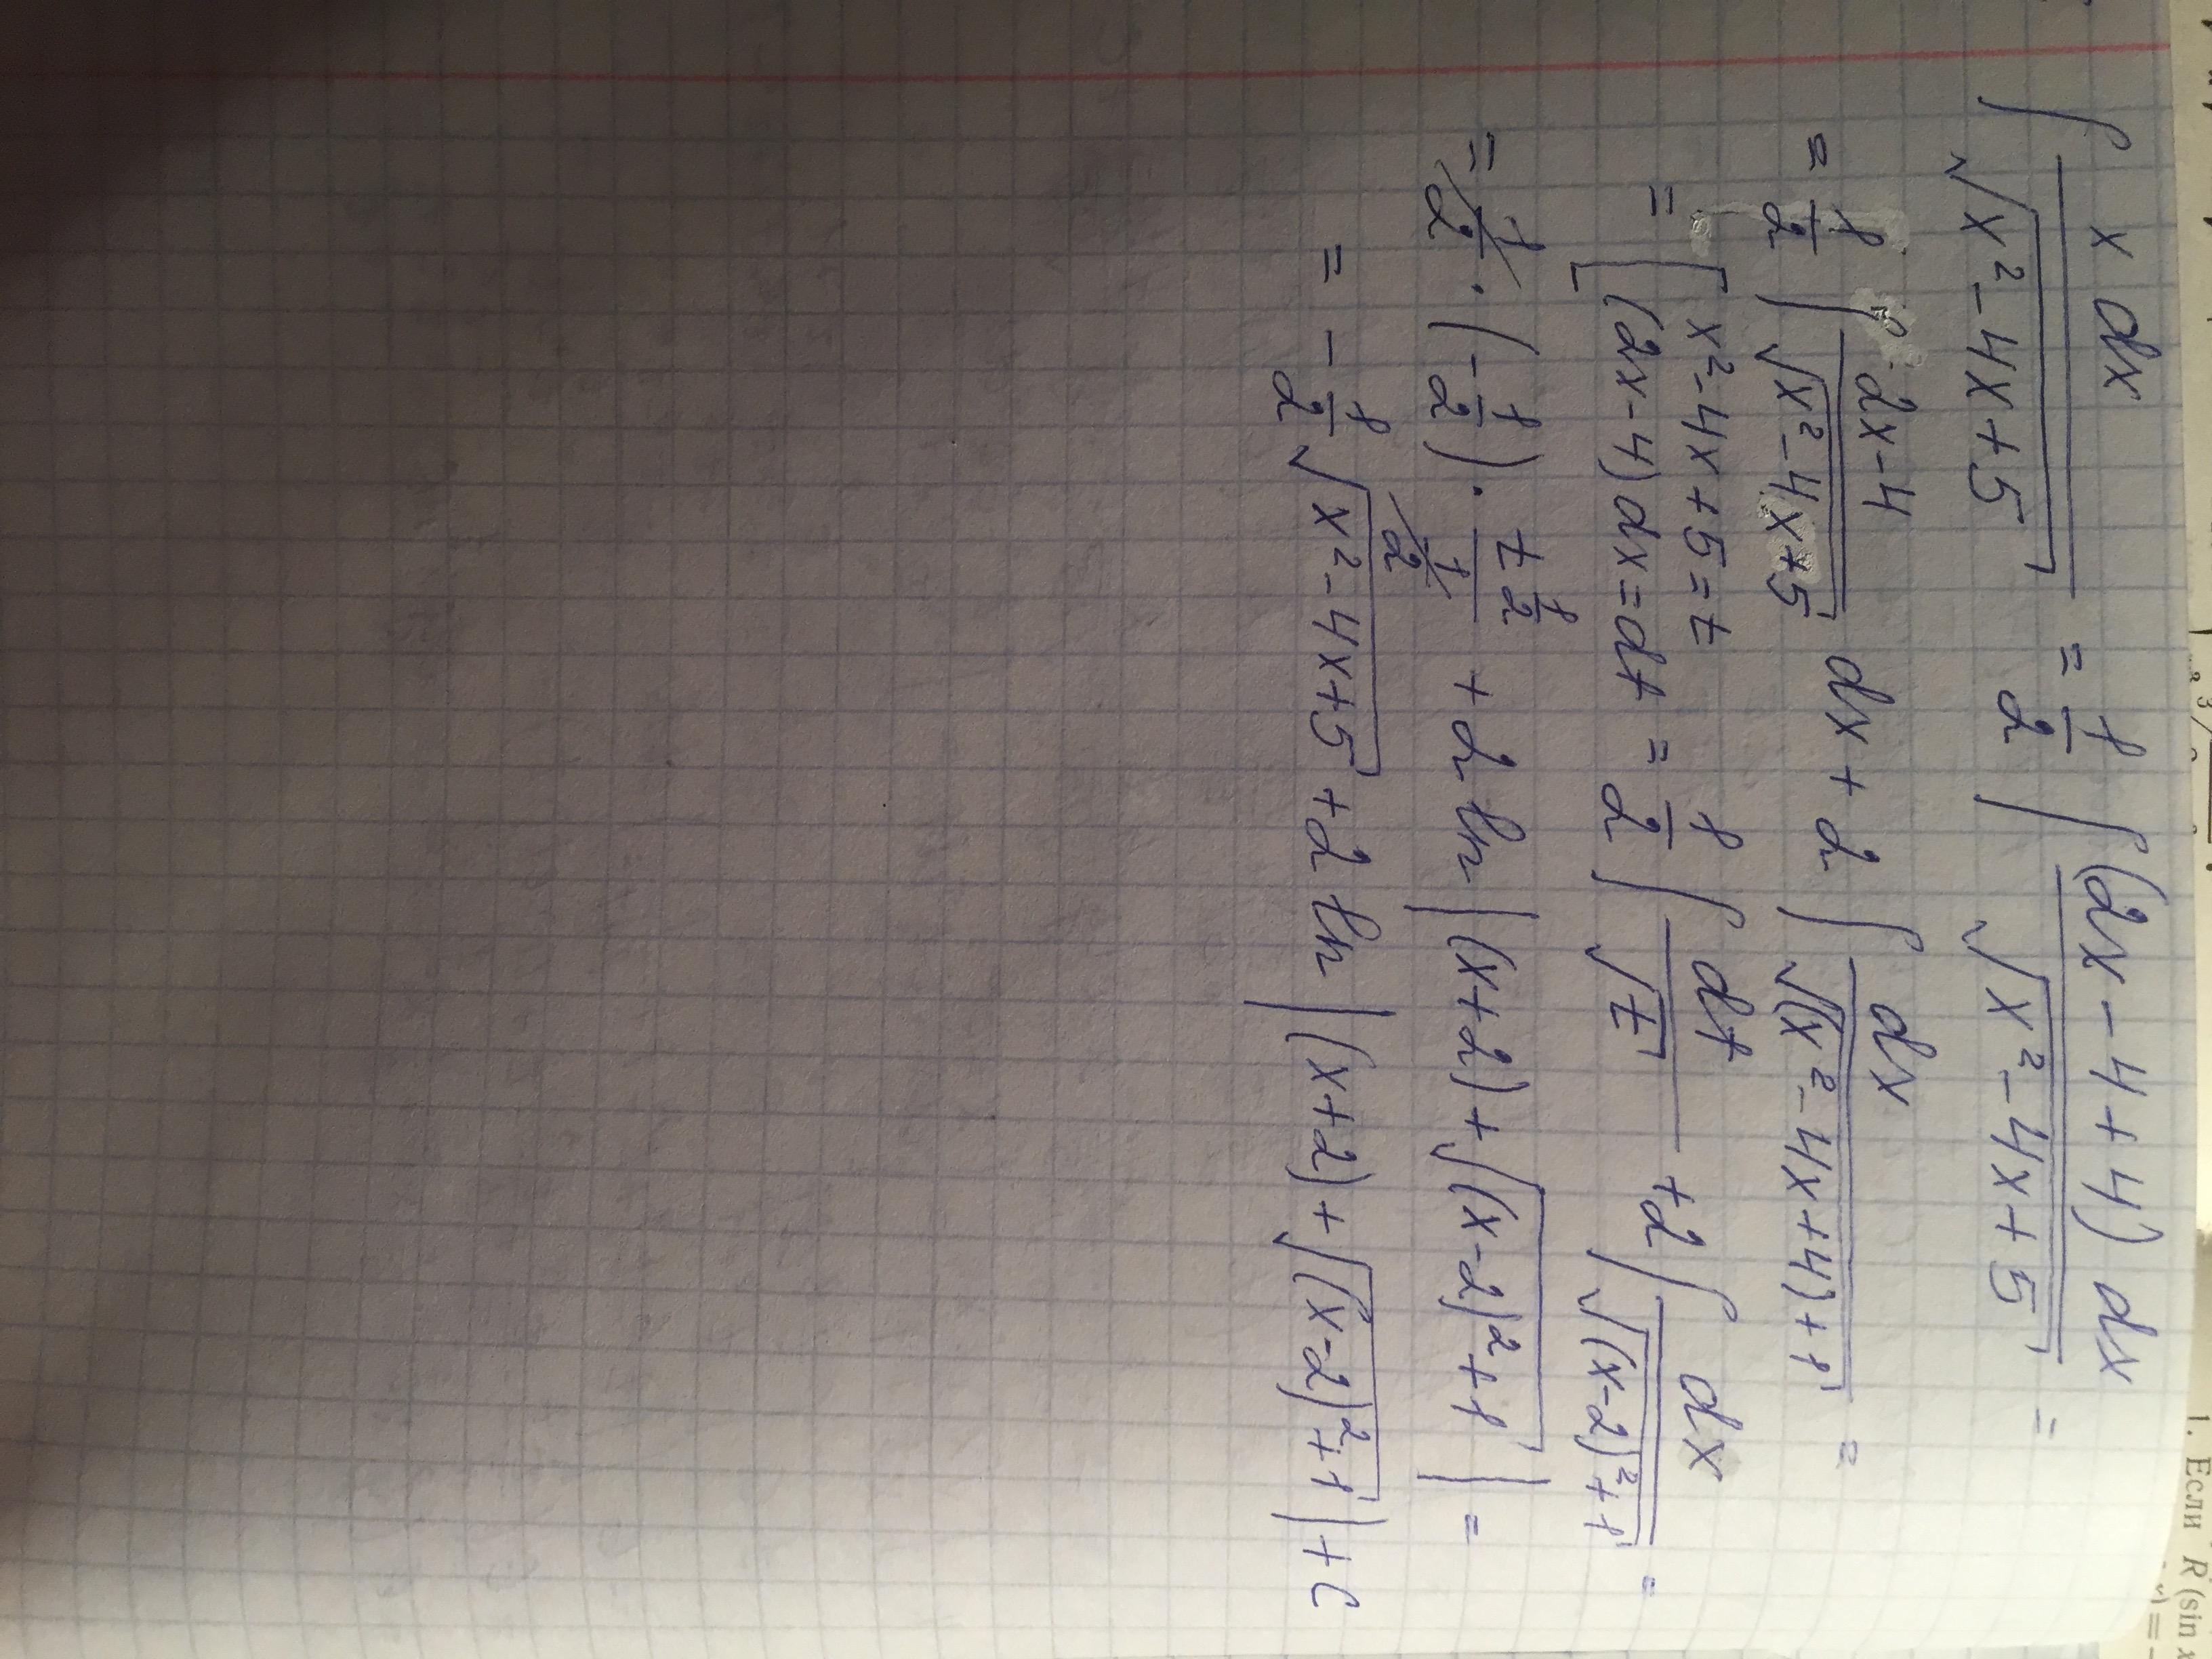 ∫ x dx / √(x² - 4x + 5) = 1/2 ∫ (2x - 4 + 4) dx / √(x² - 4x + 5) =
= 1/2 ∫ 2x - 4 / √(x² - 4x + 5) dx + 2 ∫ dx / √((x² - 4x + 4) + 1) =
= [x² - 4x + 5 = t
(2x - 4) dx = dt = 1/2 ∫ dt / √t + 2 ∫ dx / √((x - 2)² + 1) =
= 1/2 · (- 1/2) · t^(1/2) / (1/2) + 2 ln |(x + 2) + √((x - 2)² + 1)| =
= - 1/2 √(x² - 4x + 5) + 2 ln |(x + 2) + √((x - 2)² + 1)| + C
1. Если R (sin x